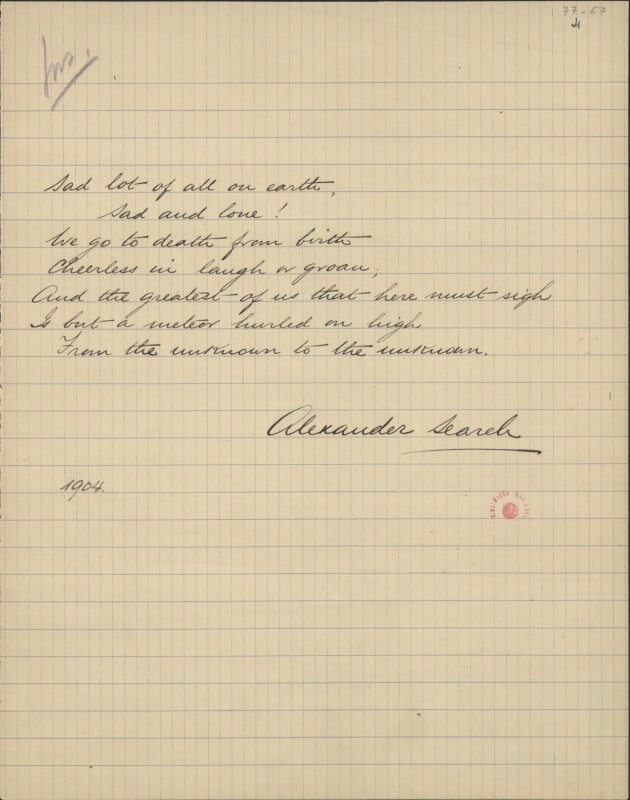 77-67
Sad lot of all on earth,
Sad and lone!
We go to death from birth
Cheerless in laugh or groan;
And the greatest of us that here must sigh
Is but a meteor hurled on high
From the unknown to the unknown.
Alexander Search
1904.